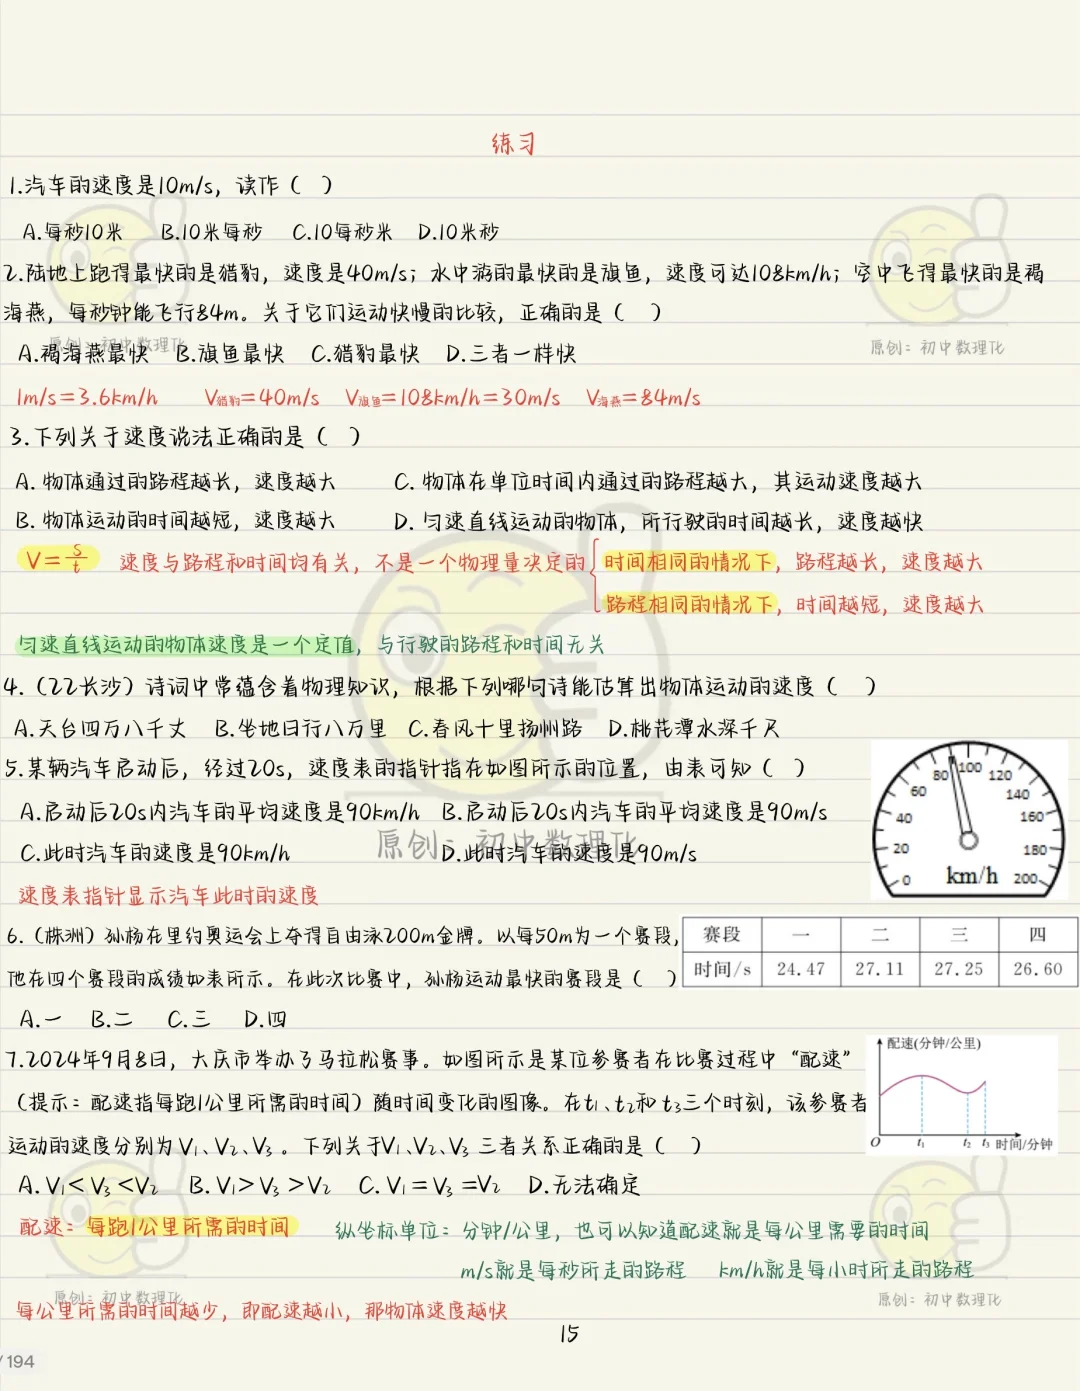 练习
1.汽车的速度是10m/s，读作（ ）
A.每秒10米 B.10米每秒 C.10每秒米 D.10米秒
2.陆地上跑得最快的是猎豹，速度是40m/s；水中游的最快的是旗鱼，速度可达108km/h；空中飞得最快的是褐
海燕，每秒钟能飞行84m。关于它们运动快慢的比较，正确的是（ ）
A.褐海燕最快 B.旗鱼最快 C.猎豹最快 D.三者一样快
原创：初中数理化
原创：初中数理化
1m/s=3.6km/h V猎豹=40m/s V旗鱼=108km/h=30m/s V海燕=84m/s
3.下列关于速度说法正确的是（ ）
A. 物体通过的路程越长，速度越大 C. 物体在单位时间内通过的路程越大，其运动速度越大
B. 物体运动的时间越短，速度越大 D. 匀速直线运动的物体，所行驶的时间越长，速度越快
V=s/t 速度与路程和时间均有关，不是一个物理量决定的{时间相同的情况下，路程越长，速度越大
路程相同的情况下，时间越短，速度越大
匀速直线运动的物体速度是一个定值，与行驶的路程和时间无关
4.（22长沙）诗词中常蕴含着物理知识，根据下列哪句诗能估算出物体运动的速度（ ）
A.天台四万八千丈 B.坐地日行八万里 C.春风十里扬州路 D.桃花潭水深千尺
5.某辆汽车启动后，经过20s，速度表的指针指在如图所示的位置，由表可知（ ）
A.启动后20s内汽车的平均速度是90km/h B.启动后20s内汽车的平均速度是90m/s
C.此时汽车的速度是90km/h D.此时汽车的速度是90m/s
原创：初中数理化
0 20 40 60 80 100 120 140 160 180 200
km/h
速度表指针显示汽车此时的速度
6.（株洲）孙杨在里约奥运会上夺得自由泳200m金牌。以每50m为一个赛段，
他在四个赛段的成绩如表所示。在此次比赛中，孙杨运动最快的赛段是（ ）
赛段 一 二 三 四
时间/s 24.47 27.11 27.25 26.60
A.一 B.二 C.三 D.四
7.2024年9月8日，大庆市举办了马拉松赛事。如图所示是某位参赛者在比赛过程中“配速”
（提示：配速指每跑1公里所需的时间）随时间变化的图像。在t₁、t₂和t₃三个时刻，该参赛者
运动的速度分别为V₁、V₂、V₃。下列关于V₁、V₂、V₃三者关系正确的是（ ）
配速(分钟/公里)
O t₁ t₂ t₃ 时间/分钟
A.V₁<V₃<V₂ B.V₁>V₃>V₂ C.V₁=V₃=V₂ D.无法确定
配速：每跑1公里所需的时间 纵坐标单位：分钟/公里，也可以知道配速就是每公里需要的时间
m/s就是每秒所走的路程 km/h就是每小时所走的路程
原创：初中数理化
原创：初中数理化
每公里所需的时间越少，即配速越小，那物体速度越快
15
/194